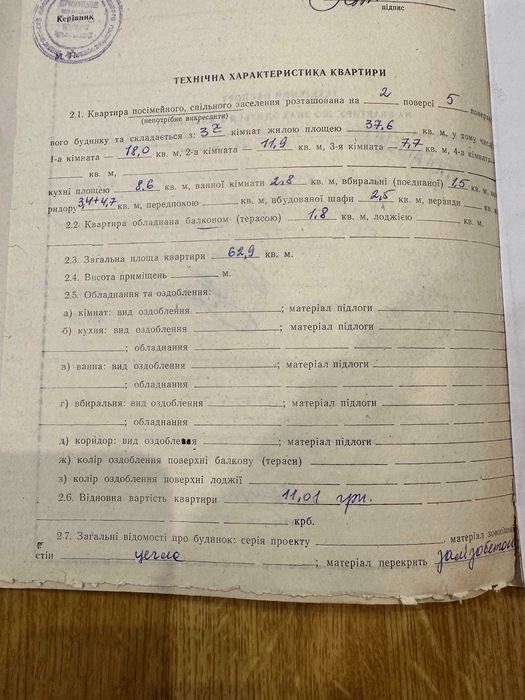 Керівник
М. П.
підпис
ТЕХНІЧНА ХАРАКТЕРИСТИКА КВАРТИРИ
2.1. Квартира посімейного, спільного заселення розташована на 2 поверсі 5 поверхо
(непотрібне викреслити)
вого будинку та складається з: 3х кімнат жилою площею 37,6 кв. м, у тому числі
1-а кімната — 18,0 кв. м, 2-а кімната — 11,9 кв. м, 3-я кімната — 7,7 кв. м, 4-а кімната
кв. м,
кухні площею 8,6 кв. м, ванної кімнати 2.8 кв. м, вбиральні (поєднаної) 1.5 кв. м,
ридору 3,4+4,7 кв. м, передпокою кв. м, вбудованої шафи 2,5 кв. м, веранди кв.
2.2 Квартира обладнана балконом (терасою) 1.8 кв. м, лоджією кв. м.
2.3. Загальна площа квартири 62,9 кв. м.
2.4. Висота приміщень м.
2.5. Обладнання та оздоблення:
а) кімнат: вид оздоблення ; матеріал підлоги
б) кухня: вид оздоблення ; матеріал підлоги
; обладнання
в) ванна: вид оздоблення ; матеріал підлоги
; обладнання
г) вбиральня: вид оздоблення ; матеріал підлоги
; обладнання
д) коридор: вид оздоблення ; матеріал підлоги
ж) колір оздоблення поверхні балкону (тераси)
з) колір оздоблення поверхні лоджії
2.6. Відновна вартість квартири 11,01 грн.
крб.
2.7. Загальні відомості про будинок: серія проекту , матеріал зовнішніх
стін цегла ; матеріал перекрить залізобетон